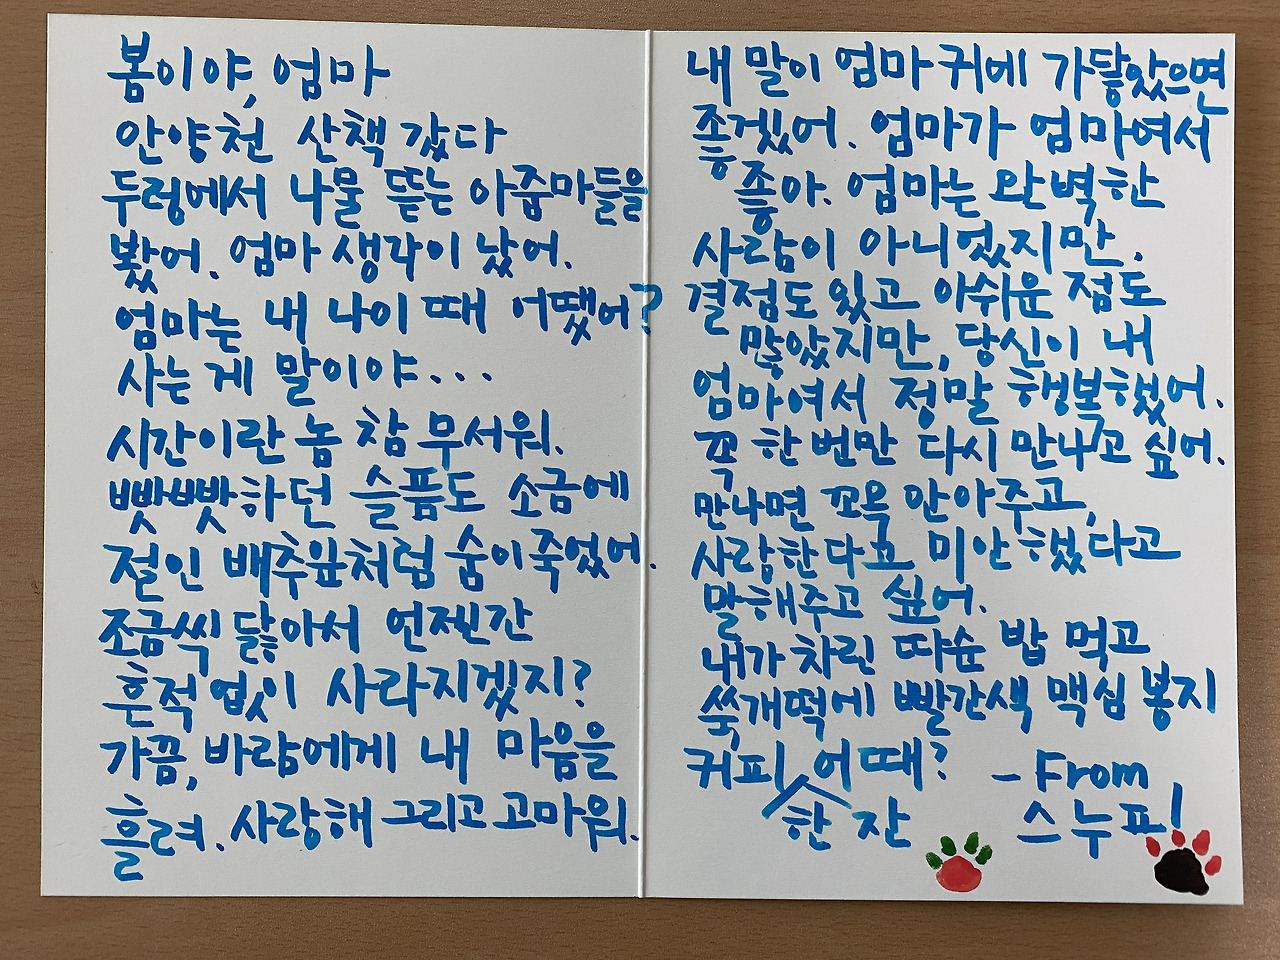 봄이야, 엄마
안양천 산책 갔다
두렁에서 나물 뜯는 아줌마들을
봤어. 엄마 생각이 났어.
엄마는 내 나이 때 어땠어?
사는 게 말이야...
시간이란 놈 참 무서워.
빳빳하던 슬픔도 소금에
절인 배추잎처럼 숨이 죽었어.
조금씩 닳아서 언젠간
흔적 없이 사라지겠지?
가끔, 바람에게 내 마음을
흘려. 사랑해 그리고 고마워.
내 말이 엄마 귀에 가닿았으면
좋겠어. 엄마가 엄마여서
좋아. 엄마는 완벽한
사람이 아니었지만.
결점도 있고 아쉬운 점도
많았지만, 당신이 내
엄마여서 정말 행복했어.
꼭 한 번만 다시 만나고 싶어.
만나면 꼬옥 안아주고,
사랑한다고 미안했다고
말해주고 싶어.
내가 차린 따순 밥 먹고
쑥개떡에 빨간색 맥심 봉지
커피 한 잔 어때? - From
스누피!